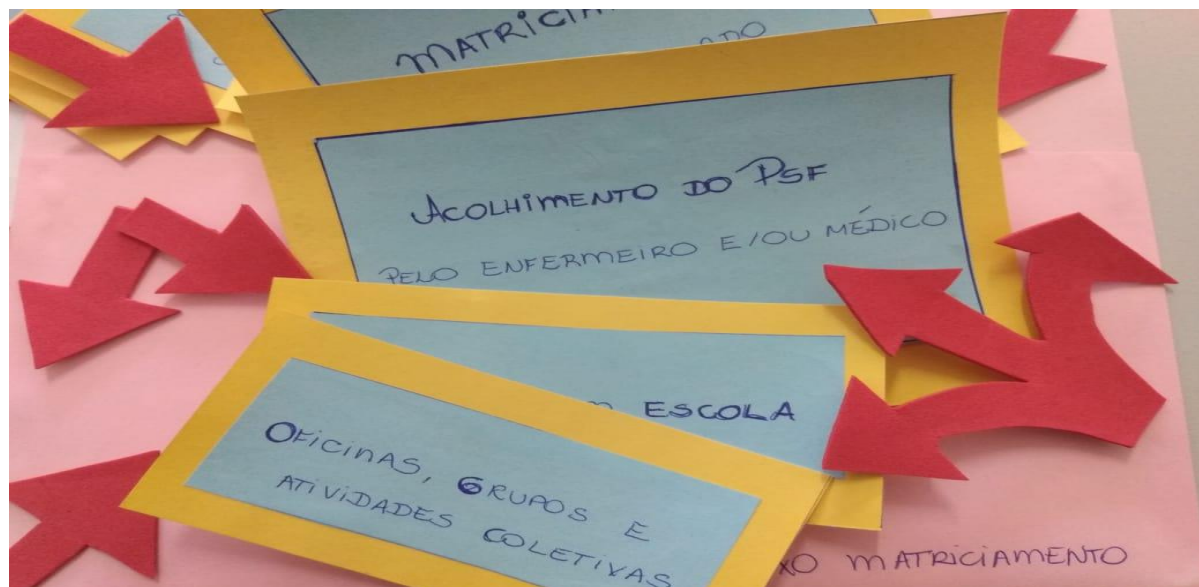 ADO
ACOLHIMENTO DO PSF
PELO ENFERMEIRO E/OU MÉDICO
ESCOLA
OFICINAS, GRUPOS E
ATIVIDADES COLETIVAS
MATRICIAMENTO